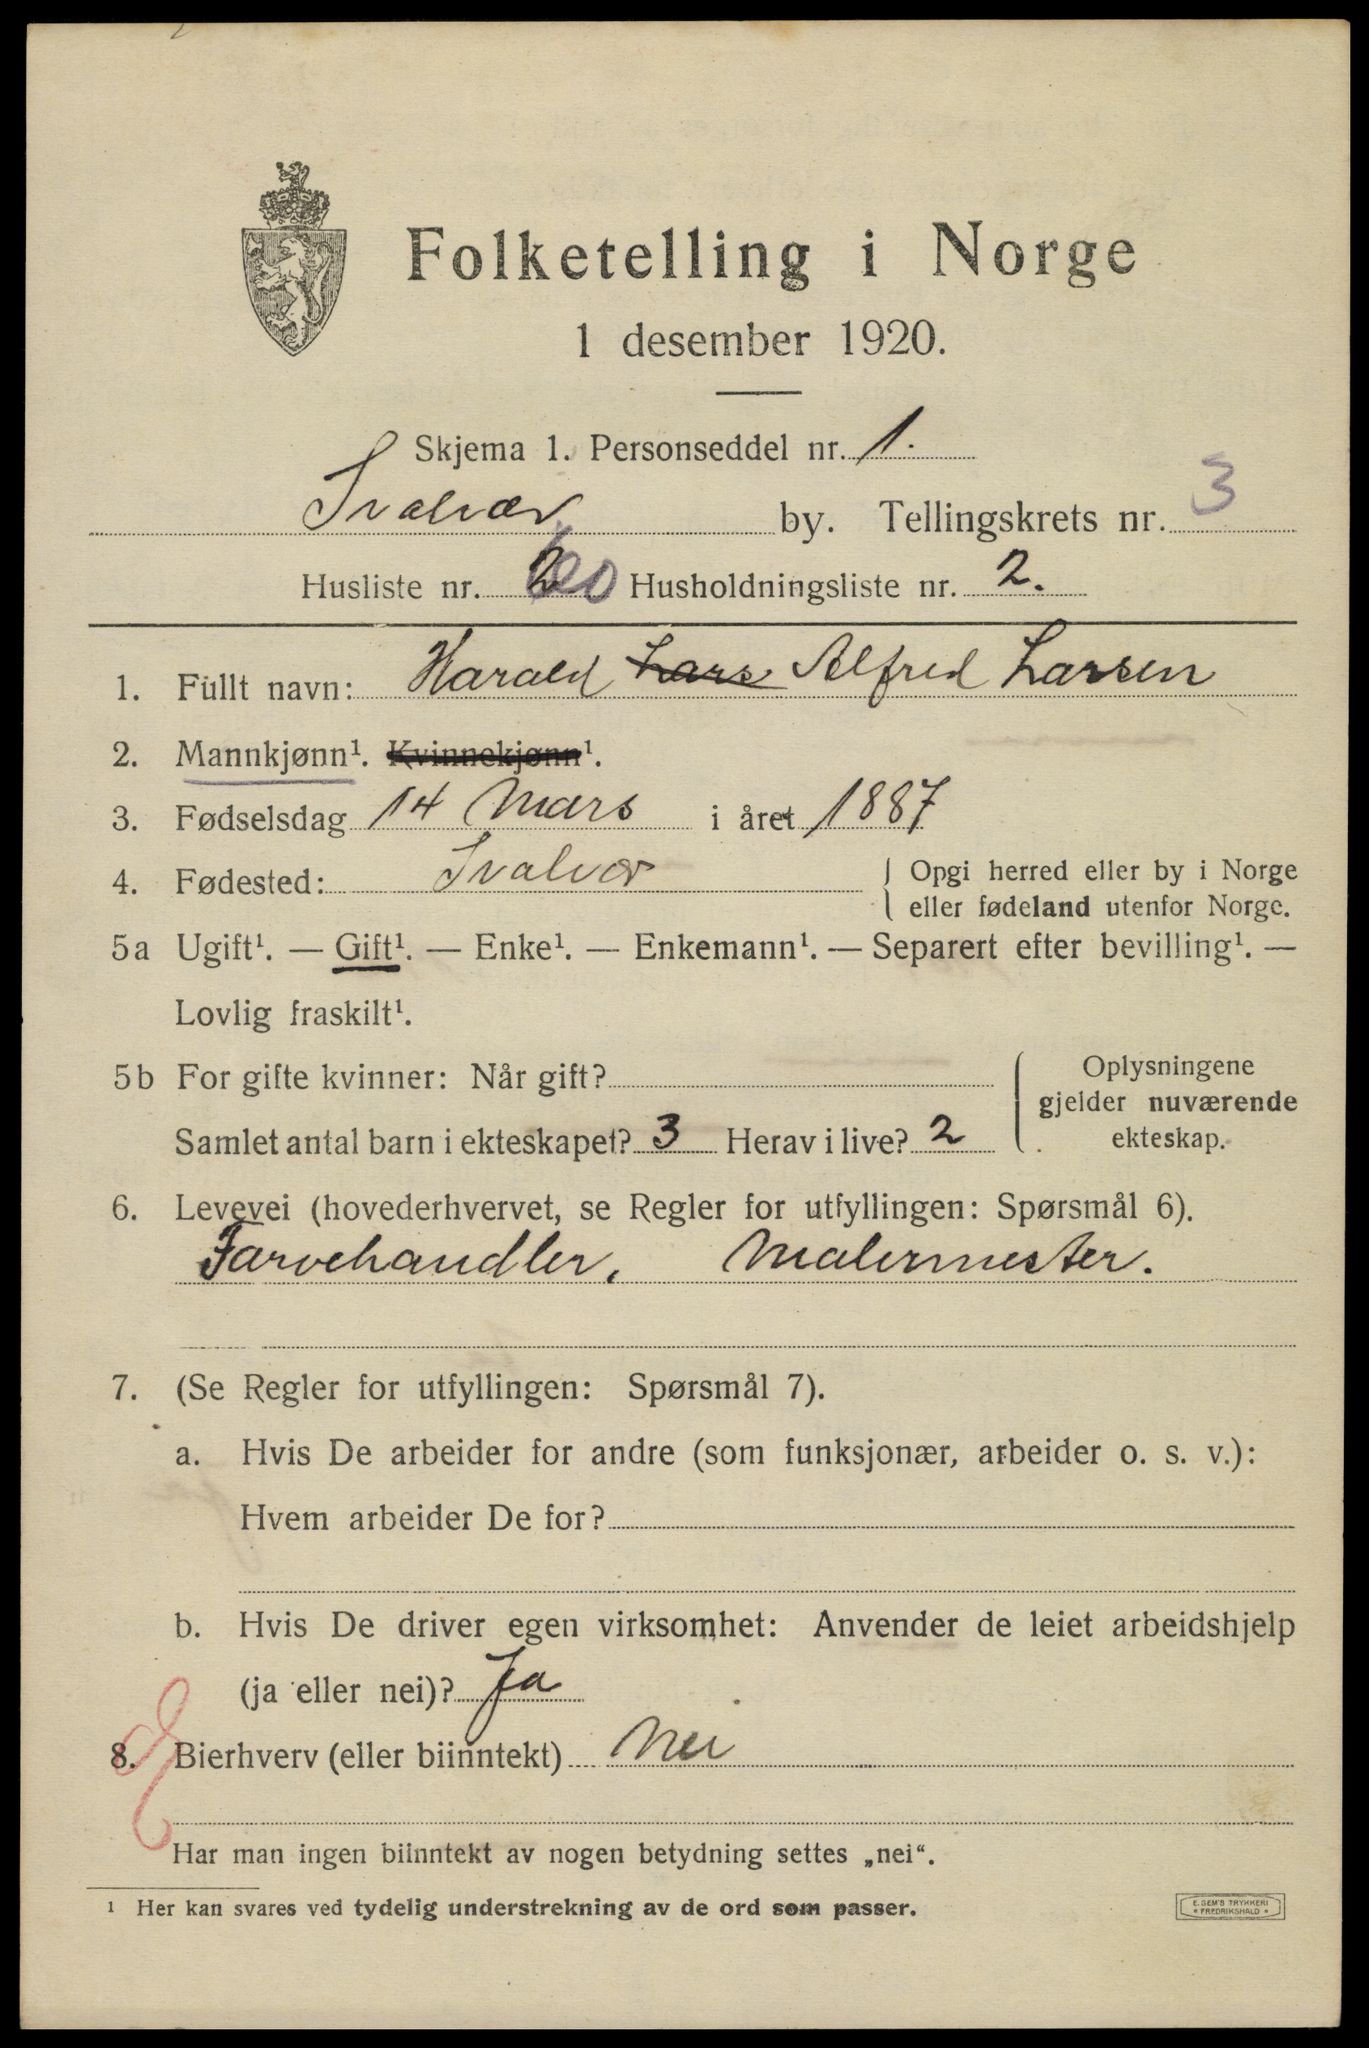 Folketelling i Norge
1 desember 1920.
Skjema 1. Personseddel nr. 1.
Svolvær by. Tellingskrets nr. 3
Husliste nr. 2 60 Husholdningsliste nr. 2.
1. Fullt navn: Harald Lars Alfred Larsen
2. Mannkjønn¹. Kvinnekjønn¹.
3. Fødselsdag 14 Mars i året 1887
4. Fødested: Svolvær { Opgi herred eller by i Norge
eller fødeland utenfor Norge.
5a Ugift¹. — Gift¹. — Enke¹. — Enkemann¹. — Separert efter bevilling¹. —
Lovlig fraskilt¹.
5b For gifte kvinner: Når gift? { Oplysningene
gjelder nuværende
Samlet antal barn i ekteskapet? 3 Herav i live? 2 ekteskap.
6. Levevei (hovederhvervet, se Regler for utfyllingen: Spørsmål 6).
Farvehandler, Malermester.
7. (Se Regler for utfyllingen: Spørsmål 7).
a. Hvis De arbeider for andre (som funksjonær, arbeider o. s. v.):
Hvem arbeider De for?
b. Hvis De driver egen virksomhet: Anvender de leiet arbeidshjelp
(ja eller nei)? Ja
8. Bierhverv (eller biinntekt) Nei
Har man ingen biinntekt av nogen betydning settes „nei“.
¹ Her kan svares ved tydelig understrekning av de ord som passer.
E. SEM'S TRYKKERI
FREDRIKSHALD